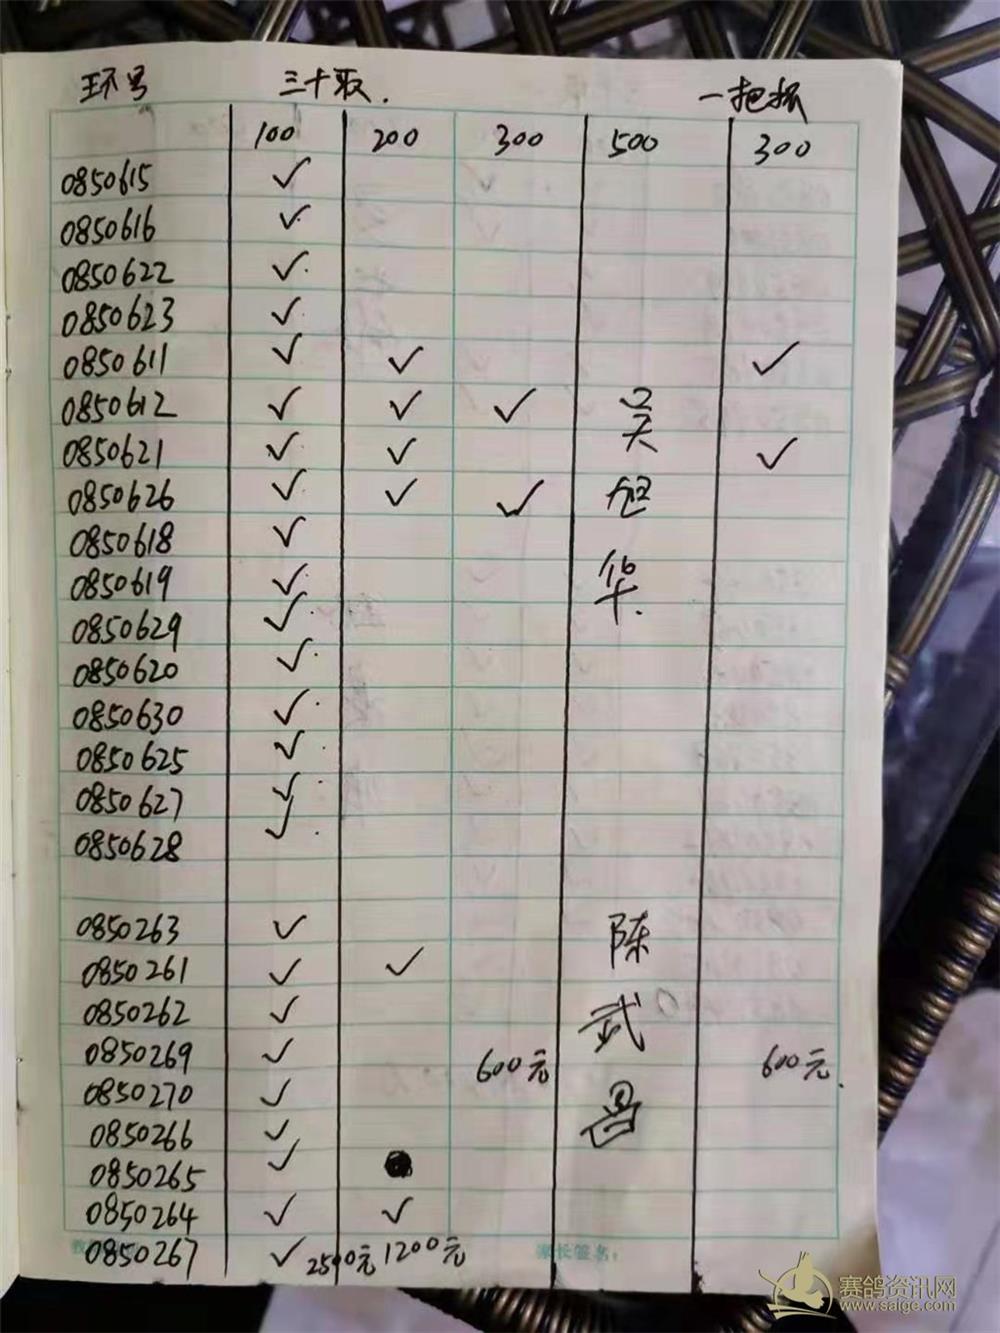 环号 三十取. 一把抓
100 200 300 500 300
0850615 ✓
0850616 ✓
0850622 ✓
0850623 ✓
0850611 ✓ ✓ ✓
0850612 ✓ ✓ ✓ 吴
0850621 ✓ ✓ ✓
0850626 ✓ ✓ ✓ 旭
0850618 ✓
0850619 ✓ 华.
0850629 ✓
0850620 ✓
0850630 ✓
0850625 ✓
0850627 ✓
0850628 ✓
0850263 ✓ 陈
0850261 ✓ ✓
0850262 ✓ 武
0850269 ✓ 600元 600元.
0850270 ✓
0850266 ✓
0850265 ✓
0850264 ✓ ✓
0850267 ✓ 2500元 1200元
家长签名:
赛鸽资讯网
www.saige.com